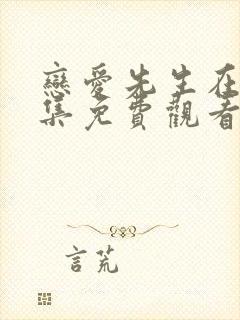 戀愛先生在
集免費觀看
言荒